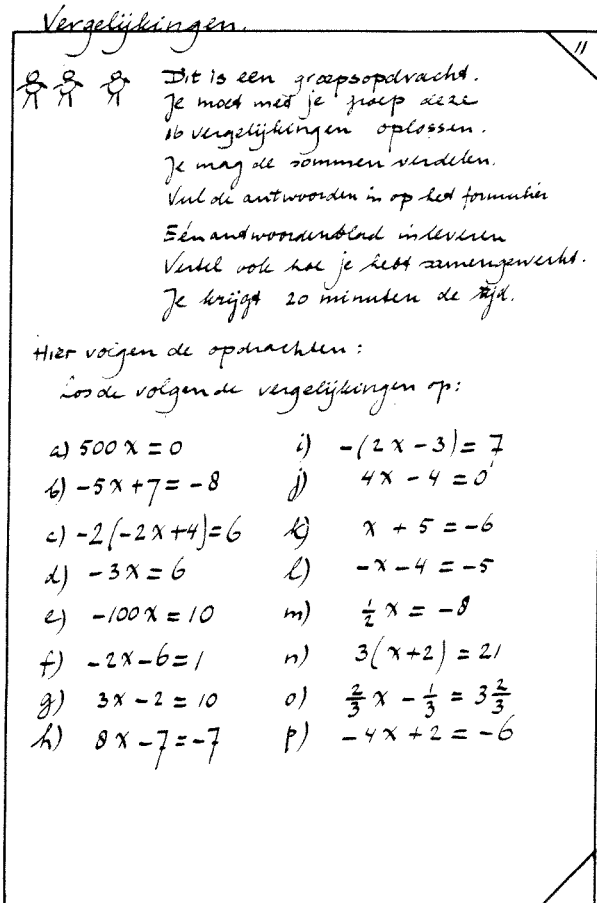 Vergelijkingen.
11
Dit is een groepsopdracht.
Je moet met je groep deze
16 vergelijkingen oplossen.
Je mag de sommen verdelen.
Vul de antwoorden in op het formulier
Eén antwoordenblad inleveren
Vertel ook hoe je hebt samengewerkt.
Je krijgt 20 minuten de tijd.
Hier volgen de opdrachten:
Los de volgende vergelijkingen op:
a) 500x = 0
b) -5x + 7 = -8
c) -2(-2x+4) = 6
d) -3x = 6
e) -100x = 10
f) -2x - 6 = 1
g) 3x - 2 = 10
h) 8x - 7 = -7
i) -(2x - 3) = 7
j) 4x - 4 = 0
k) x + 5 = -6
l) -x - 4 = -5
m) ½x = -8
n) 3(x+2) = 21
o) ⅔x - ⅓ = 3⅔
p) -4x + 2 = -6